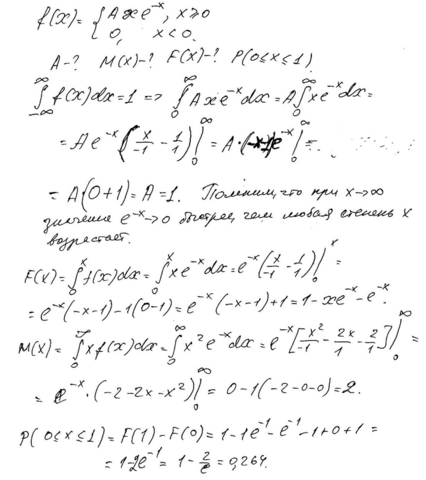 f(x) = { A x e^{-x}, x ≥ 0
0, x < 0.
A-? M(x)-? F(x)-? P(0≤x≤1)
∫_{-∞}^{∞} f(x)dx = 1 => ∫_0^∞ A x e^{-x}dx = A ∫_0^∞ x e^{-x}dx =
= A e^{-x} (x/-1 - 1/1) |_0^∞ = A·(-x-1)e^{-x} |_0^∞ =
= A(0+1) = A = 1. Помним, что при x→∞
значение e^{-x}→0 быстрее, чем любая степень x
возрастает.
F(x) = ∫_0^x f(x)dx = ∫_0^x x e^{-x}dx = e^{-x} (x/-1 - 1/1) |_0^x =
= e^{-x}(-x-1) - 1(0-1) = e^{-x}(-x-1)+1 = 1-xe^{-x}-e^{-x}.
M(x) = ∫_0^∞ x f(x)dx = ∫_0^∞ x^2 e^{-x}dx = e^{-x} [x^2/-1 - 2x/1 - 2/1] |_0^∞ =
= e^{-x}·(-2-2x-x^2) |_0^∞ = 0-1(-2-0-0) = 2.
P(0≤x≤1) = F(1)-F(0) = 1-1e^{-1}-e^{-1}-1+0+1 =
= 1-2e^{-1} = 1 - 2/e = 0,264.